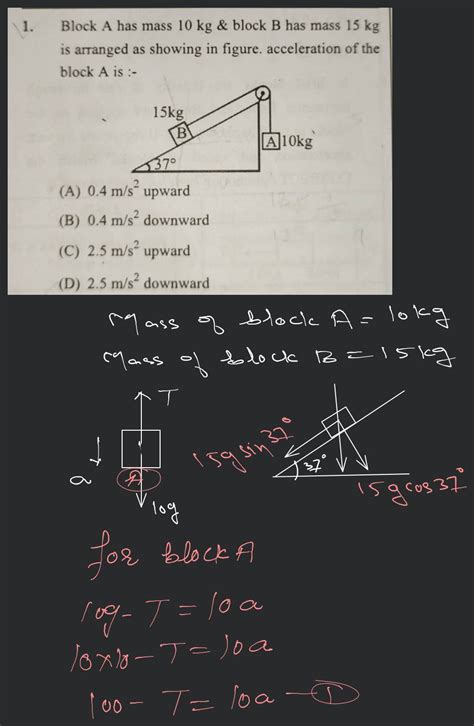 1. Block A has mass 10 kg & block B has mass 15 kg
is arranged as showing in figure. acceleration of the
block A is :-
15kg
B
A 10kg
37°
(A) 0.4 m/s² upward
(B) 0.4 m/s² downward
(C) 2.5 m/s² upward
(D) 2.5 m/s² downward
Mass of block A = 10kg
Mass of block B = 15kg
T
a
A
10g
15g sin37°
37°
15g cos37°
for block A
10g - T = 10a
10×10 - T = 10a
100 - T = 10a - I